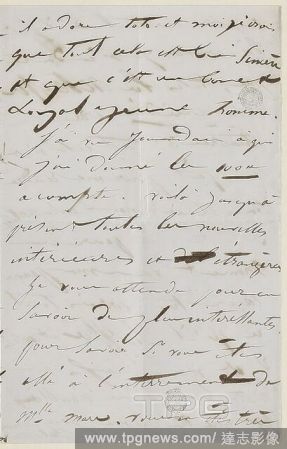 il adore toto et moi je crois
que tout cela est bien Sincère
et que c'est un bon et
Loyal jeune homme.
J'ai vu Jourdain à qui
j'ai donné les
acompte. voilà jusqu'à
présent toutes les nouvelles
intérieures et étrangères
Je vous attends pour en
Savoir de plus intéressantes
pour Savoir Si vous êtes
allé à l'enterrement de
Mlle mars. vous
TPG
www.tpgnews.com / 達志影像